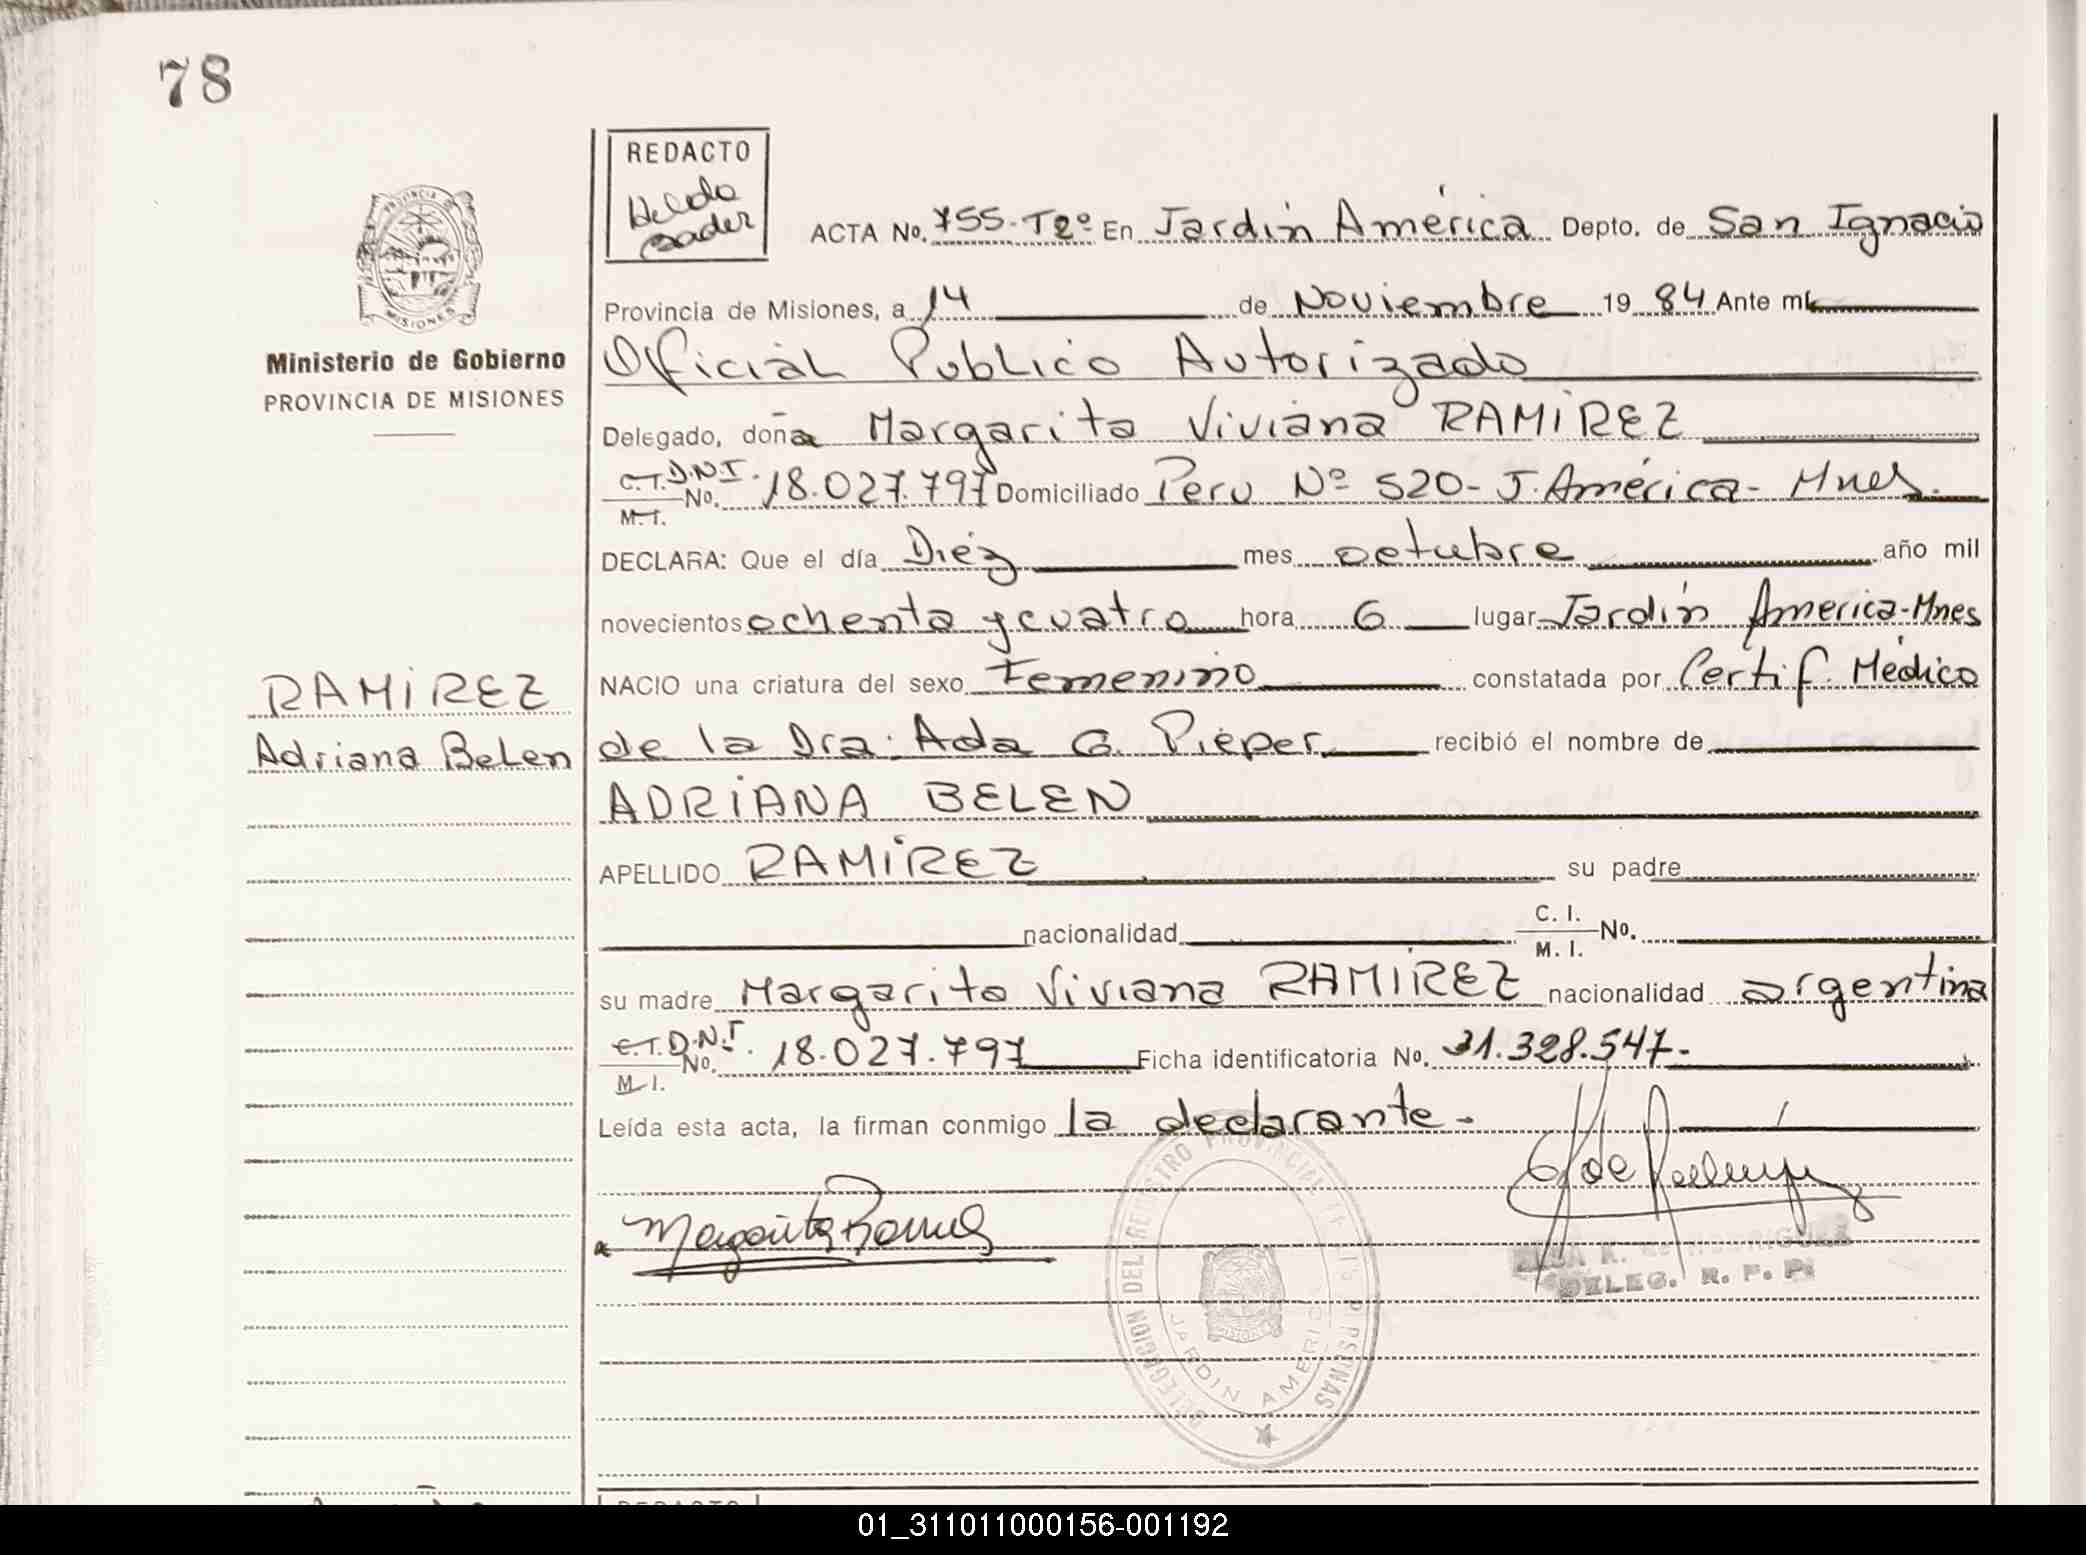 78
REDACTO
ACTA No. 755-Tº2º En Jardín América Depto. de San Ignacio
Provincia de Misiones, a 14 de Noviembre 19 84 Ante mí
Ministerio de Gobierno
PROVINCIA DE MISIONES
Oficial Publico Autorizado
Delegado, doña Margarita Viviana RAMIREZ
C.I. D.N.I. No. 18.027.797 Domiciliado Peru Nº 520- J. América- Mnes.
M. I.
DECLARA: Que el día Diez mes octubre año mil
novecientos ochenta y cuatro hora 6 lugar Jardín America-Mnes
NACIO una criatura del sexo Femenino constatada por Certif. Médico
RAMIREZ
Adriana Belen
de la Dra. Ada G. Pieper recibió el nombre de
ADRIANA BELEN
APELLIDO RAMIREZ su padre
nacionalidad C. I. No.
M. I.
su madre Margarita Viviana RAMIREZ nacionalidad argentina
C.I. D.N.I. No. 18.027.797 Ficha identificatoria No. 31.328.547-
M. I.
Leída esta acta, la firman conmigo la declarante-
DELEGACION DEL REGISTRO PROVINCIAL DE LAS PERSONAS
MISIONES
JARDIN AMERICA
DELEG. R. P. P.
01_311011000156-001192